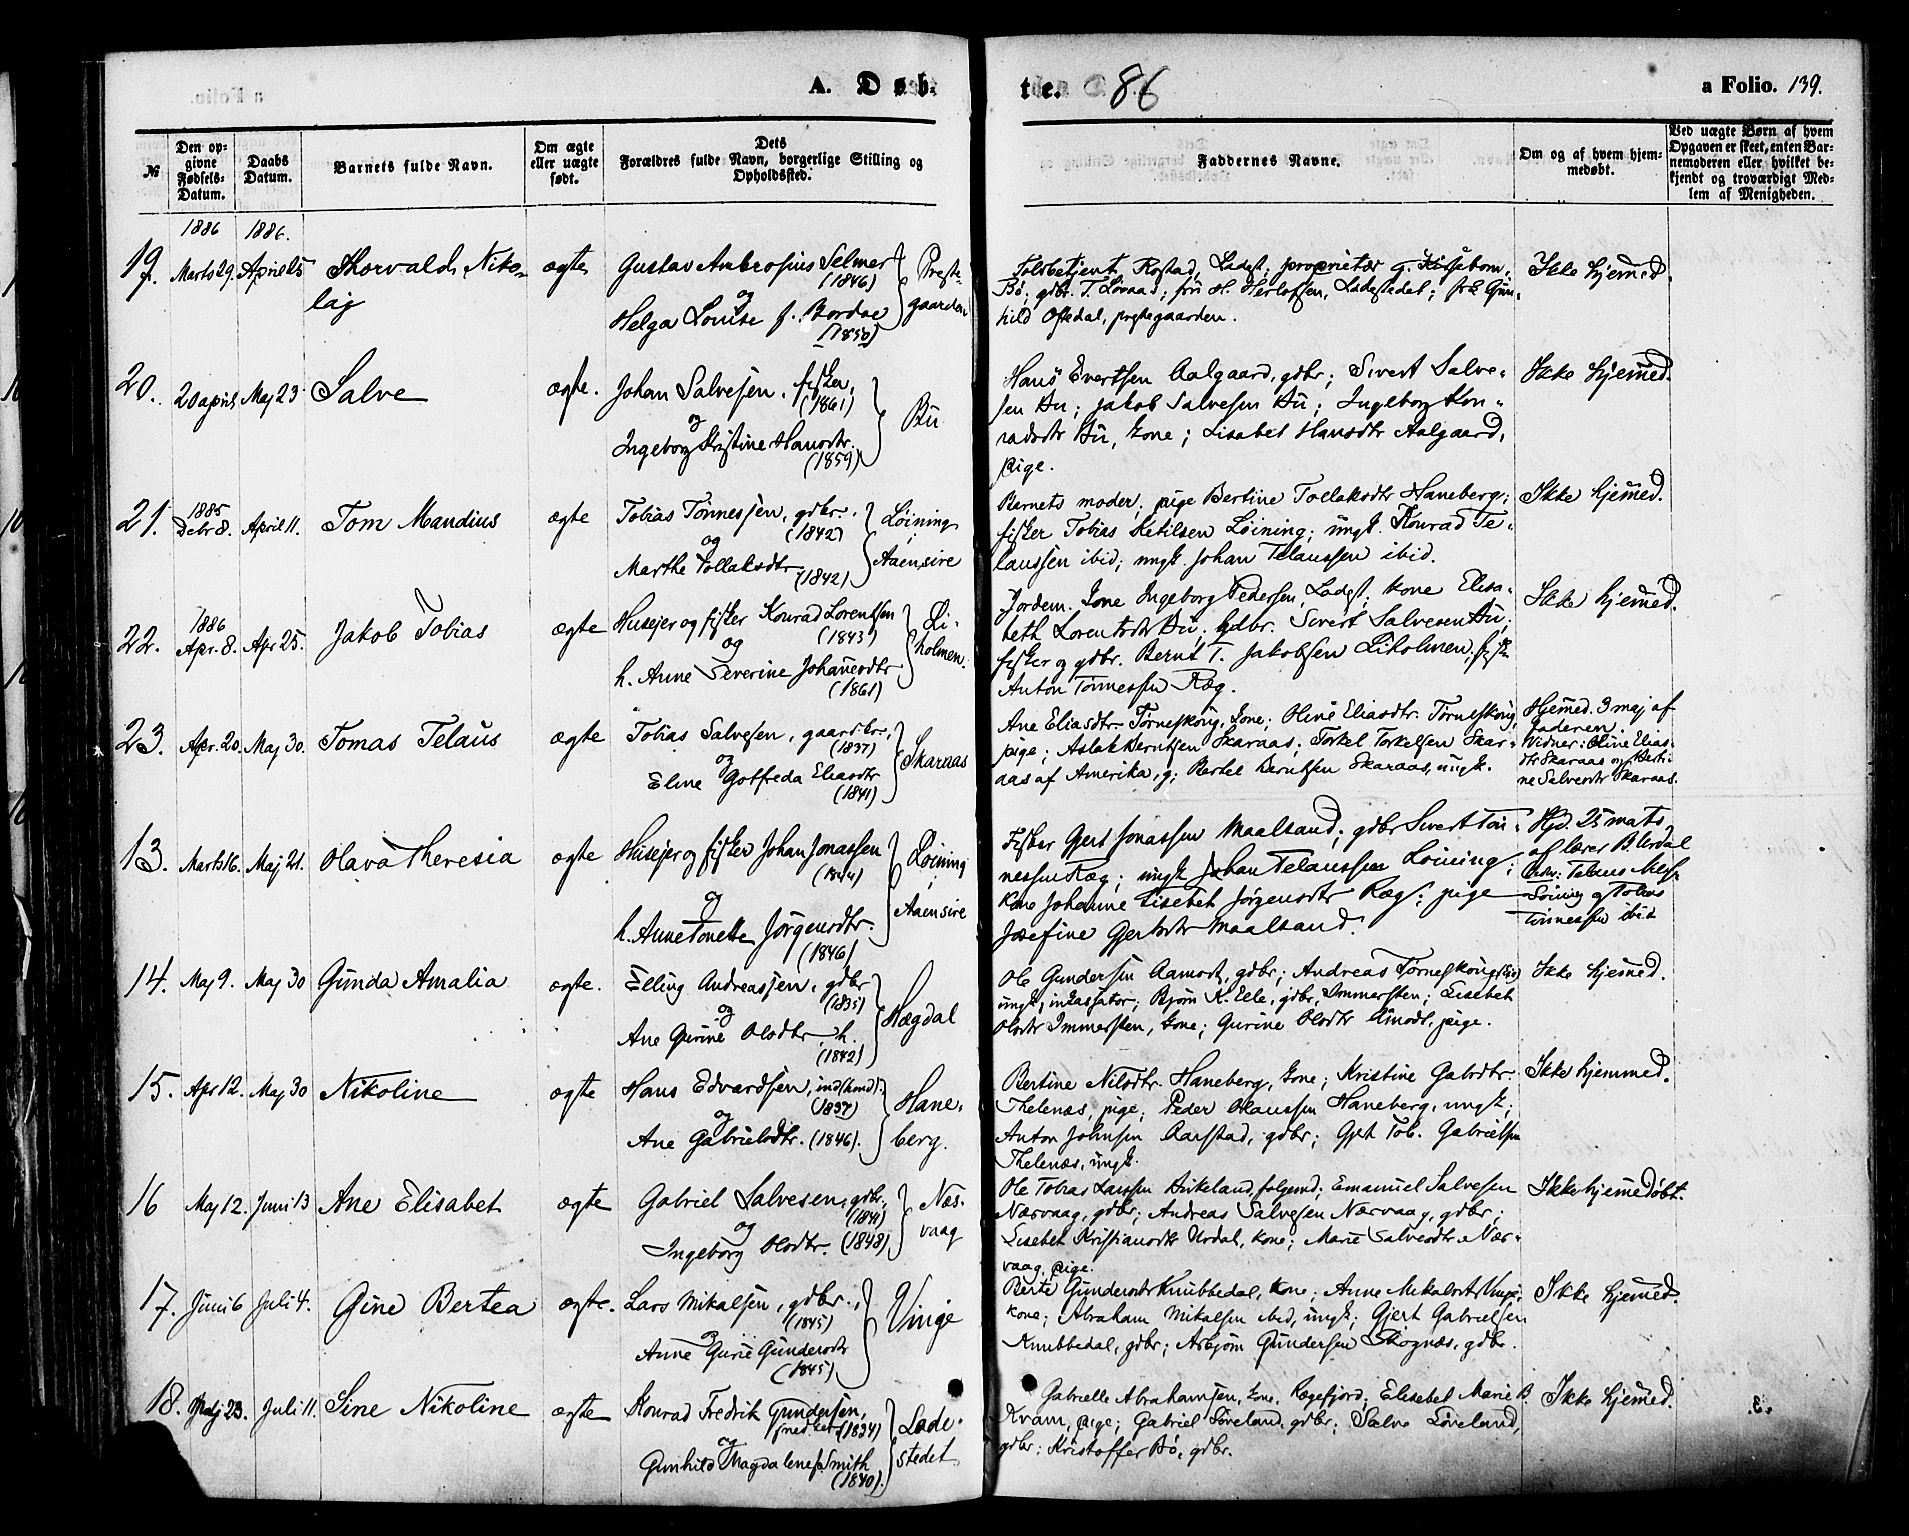 A. Døb-
te.
86
a Folio. 139.
№
Den op-
givne
Fødsels-
Datum.
Daabs
Datum.
Barnets fulde Navn.
Om ægte
eller uægte
født.
Dets
Forældres fulde Navn, borgerlige Stilling og
Opholdssted.
Faddernes Navne.
Om og af hvem hjem-
medøbt.
Ved uægte Børn af hvem
Opgaven er skeet, enten Bar-
nemoderen eller hvilket be-
kjendt og troværdigt Med-
lem af Menigheden.
1886 1886.
19. Marts 29. April 25 Thorvald Niko-
laj
ægte
Gustav Ambrosius Selmer
(1846)
og
Helga Louise f. Bordoe
(1850)
Preste-
gaarden
Toldbetjent Rostad, Ladest; proprietær G. Kirsebom,
Bø; gdbr. T. Lovaas; fru H. Herlofsen, Ladestedet; frk Gun-
hild Oftedal, prestegaarden.
Ikke hjemed.
20. 20 april Maj 23 Salve
ægte.
Johan Salvesen, fisker,
(1861)
og
Ingeborg Kristine Hansdtr.
(1859)
Bu
Hans Evertsen Aalgaard, gdbr; Sivert Salve-
sen Bu; Jakob Salvesen Bu; Ingeborg Kon-
radsdtr Bu, kone; Lisabet Hansdtr Aalgaard,
pige.
Ikke hjemed.
21. 1885
Debr 8. April 11. Tom Mandius
ægte
Tobias Tønnessen, gdbr.
(1842)
og
Marthe Tollaksdtr
(1842)
Løining
Aaensire
Barnets moder; pige Bertine Tollaksdtr Haneberg;
fisker Tobias Ketilsen Løining; ungk. Konrad Te-
laussen ibid; ungk. Johan Telaussen ibid.
Ikke hjemed.
22. 1886
Apr. 8. Apr 25. Jakob Tobias
ægte
Husejer og fisker Konrad Lorentsen
(1843)
og
h. Anne Severine Johannesdtr
(1861)
Li-
holmen.
Jordem. kone Ingeborg Pedersen, Ladest; kone Elisa-
beth Lorentsdtr Bu; gdbr. Sivert Salvesen Bu;
fisker og gdbr. Bernt T. Jakobsen Liholmen; fisker
Anton Tønnessen Ræg.
Ikke hjemed.
23. Apr. 20. Maj 30. Tomas Telaus
ægte
Tobias Salvesen, gaardbr,
(1837)
og
Eline Gotfreda Eliasdtr
(1841)
Skaraas
Ane Eliasdtr Tørneskoug, kone; Oline Eliasdtr. Tørneskoug,
pige; Aslak Berntsen Skaraas; Torkel Torkelsen Skar-
aas af Amerika, g; Bertel Berntsen Skaraas, ungk.
Hjemed. 3 maj af
faderen
Vidner: Oline Elias-
dtr Skaraas og Berti-
ne Salvesdtr Skaraas.
13. Marts 16. Maj 21. Olava Theresia
ægte
Husejer og fisker Johan Jonassen
(1844)
og
h. Anne Tonette Jørgensdtr.
(1846)
Løining
Aaensire
Fisker Gjert Jonassen Maalsand; gdbr Sivert Tøn-
nessen Ræg; ungk Johan Telaussen Løining;
kone Johanne Lisebet Jørgensdtr Ræg; pige
Josefine Gjertsdtr Maalsand.
Hjd. 25 marts
af lærer B. Urdal
Vidn: Telaus
Løining og Tobias
Tønnessen ibid
14. Maj 9. Maj 30 Gunda Amalia
ægte.
Elling Andreassen, gdbr
(1835)
og
Ane Gurine Olsdtr h.
(1842)
Hægdal
Ole Gundersen Aamodt, gdbr; Andreas Tørneskoug
ungk, inkassator; Bjørn K. Eike, gdbr, Immersten; Lisebet
Olsdtr Immersten, kone; Gurine Olsdtr Amodt, pige.
Ikke hjemed.
15. Apr 12. Maj 30 Nikoline
ægte
Hans Edvardsen, indhmd.
(1837)
og
Ane Gabrielsdtr. (1846).
Hane-
berg.
Bertine Nilsdtr. Haneberg, kone; Kristine Gabrdtr.
Thelenæs, pige; Peder Olaussen Haneberg, ungk;
Anton Johnsen Aarstad, gdbr; Gjert Tob. Gabrielsen
Thelenæs, ungk.
Ikke hjemmed.
16 Maj 12. Juni 13 Ane Elisabet
ægte
Gabriel Salvesen, gdbr,
(1841)
og
Ingeborg Olsdtr. (1848)
Næs-
vaag
Ole Tobias Larssen Birkeland, folgemd; Emanuel Salvesen
Næsvaag, gdbr; Andreas Salvesen Næsvaag, gdbr;
Lisebet Kristiansdtr Urdal, kone; Marie Salvesdtr Næs-
vaag, pige.
Ikke hjemedøbt.
17. Juni 6 Juli 4. Gine Bertea
ægte.
Lars Mikalsen, gdbr.,
(1845)
og
Anne Gurie Gundersdtr
(1845)
Vinge
Berte Gundersdtr Knubbedal, kone; Anne Mikalsdtr Vinge,
kone; Abraham Mikalsen ibid, ungk; Gjert Gabrielsen
Knubbedal, gdbr; Asbjørn Gundersen Skognæs, gdbr.
Ikke hjemed.
18. Maj 23. Juli 11. Sine Nikoline
ægte
Konrad Fredrik Gundersen,
(1834)
og
Gunhild Magdalene f. Smith
(1840).
Lade-
stedet
Gabrielle Abrahamsen, kone, Rægefjord; Elisebet Marie B.
Kvam, pige; Gabriel Løveland, gdbr; Salve Løveland,
gdbr; Kristoffer Bø, gdbr.
Ikke hjemed.